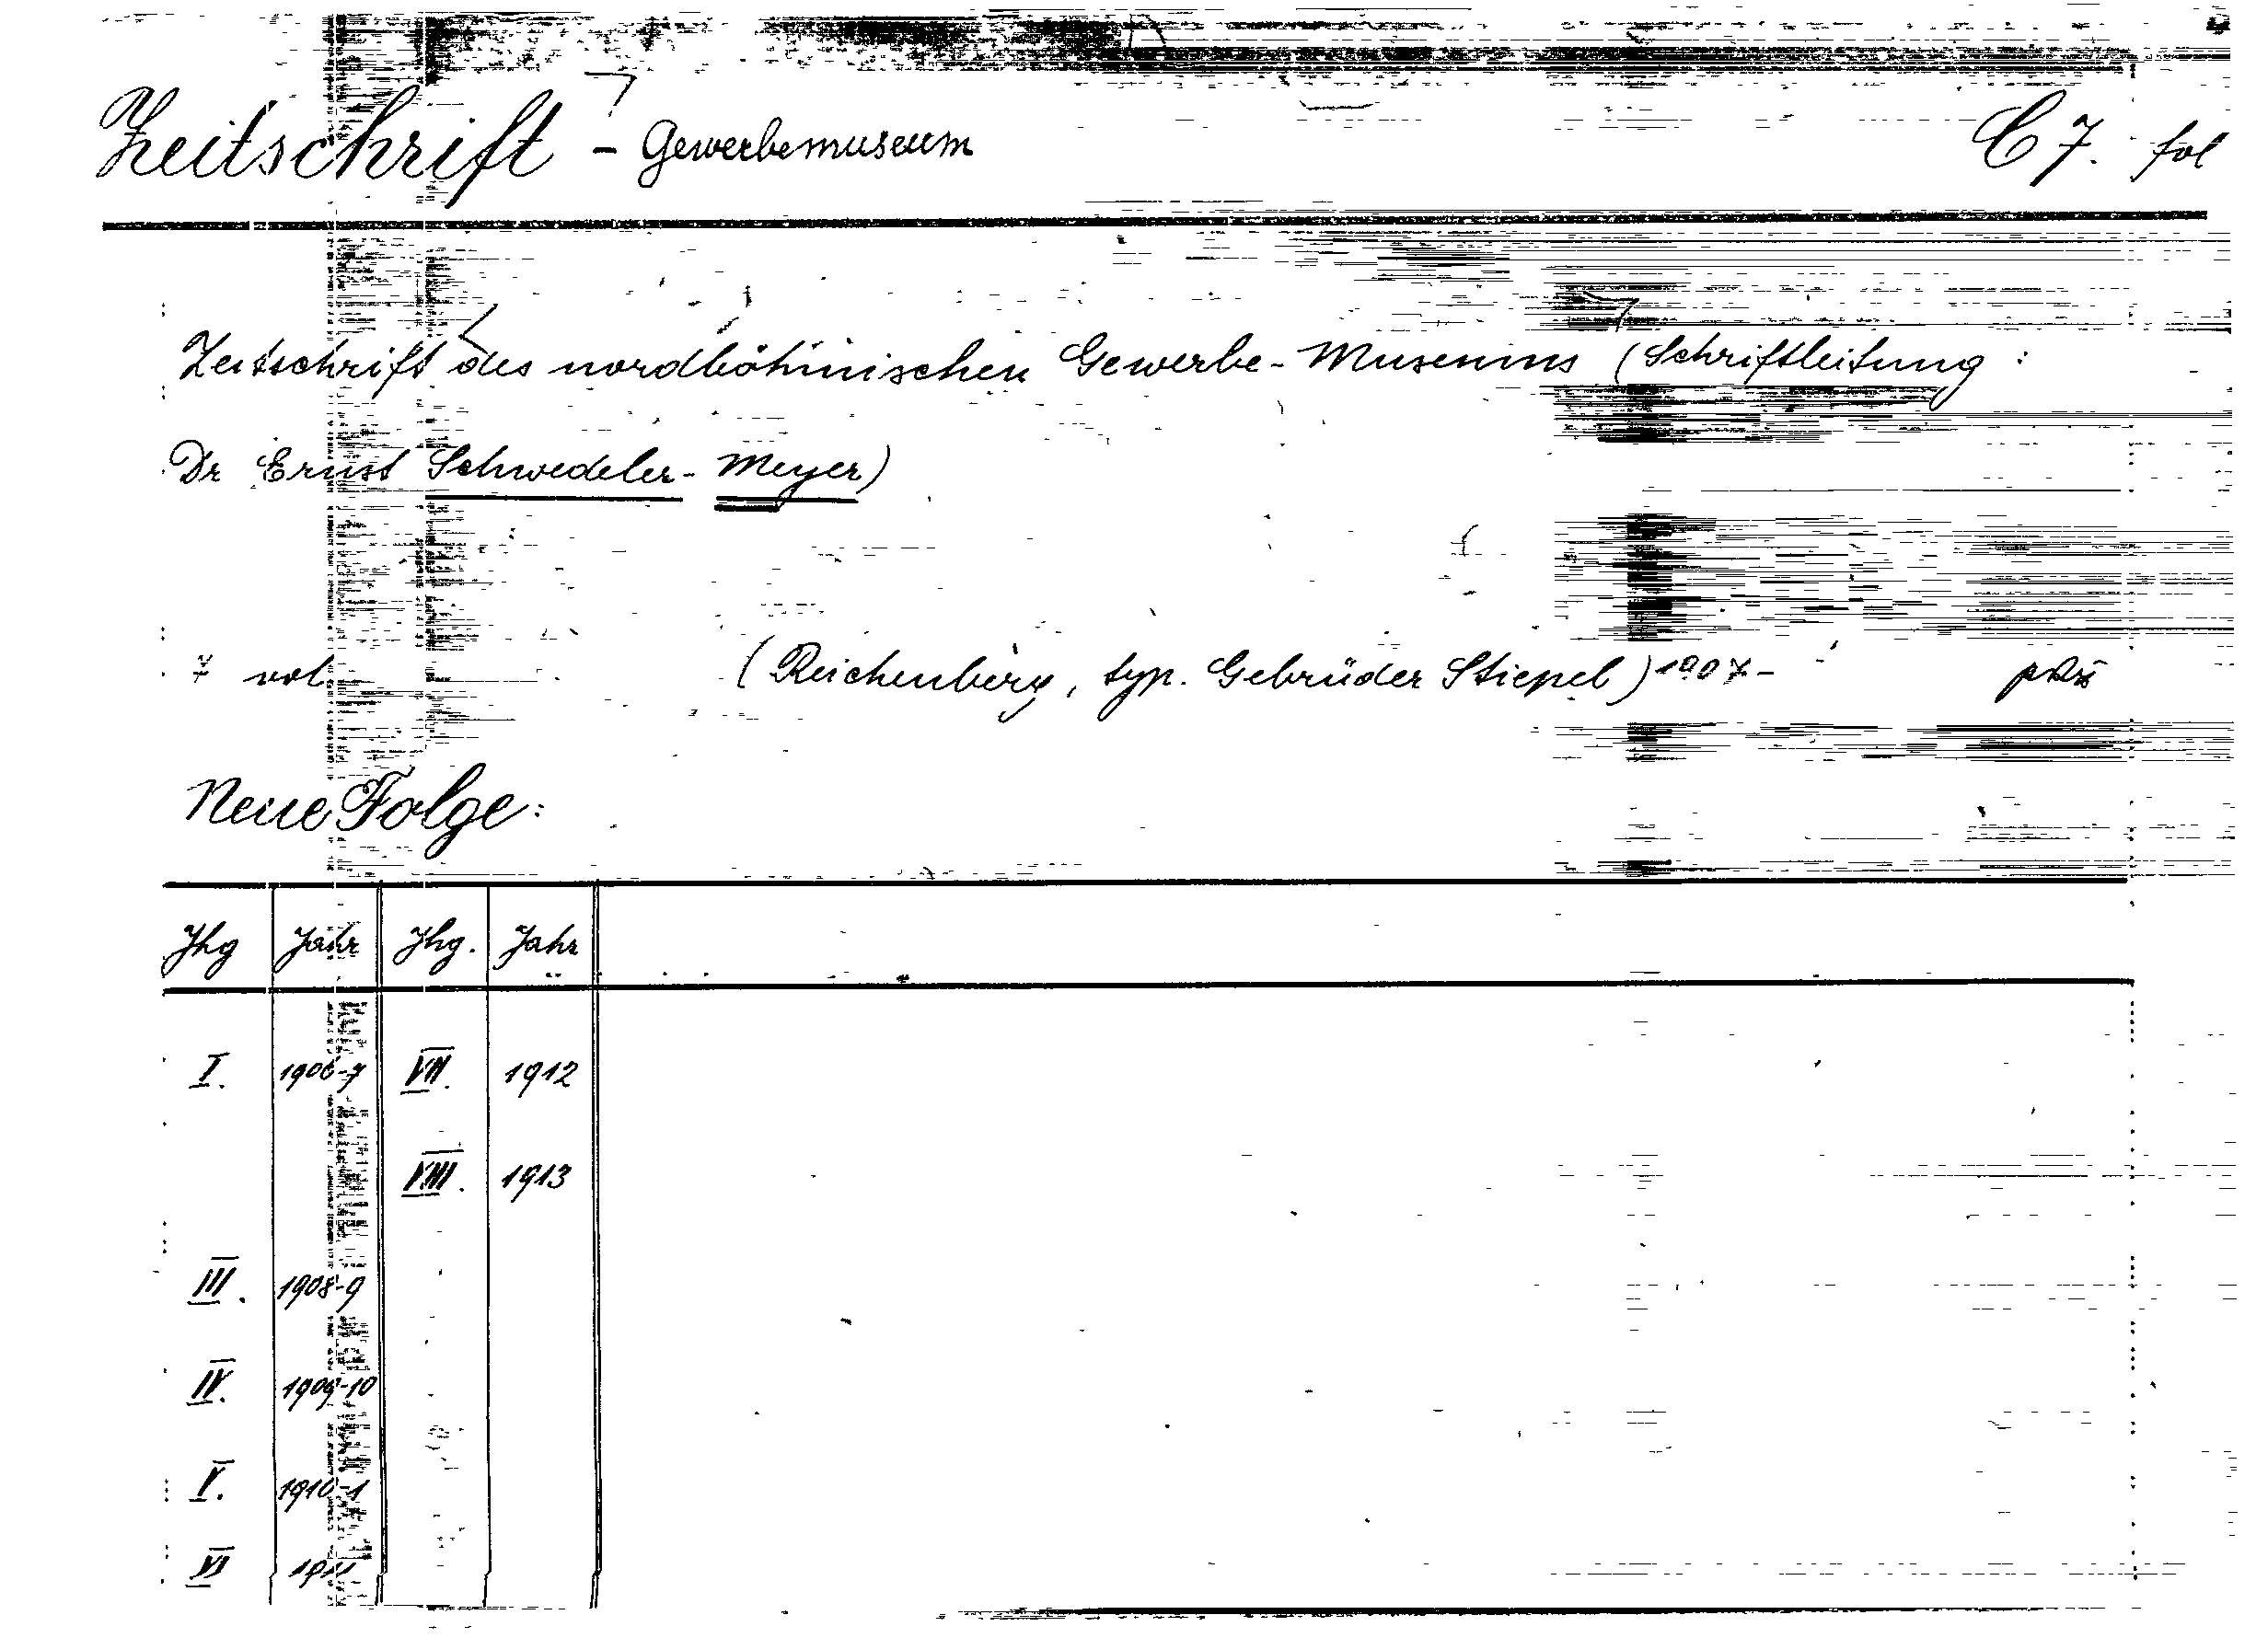 Zeitschrift - Gewerbemuseum C 7. fol
Zeitschrift des nordböhmischen Gewerbe-Museums (Schriftleitung:
Dr Ernst Schwedeler-Meyer)
7 vol (Reichenberg, typ. Gebrüder Stiepel) 1907-
Neue Folge:
Jhg Jahr Jhg. Jahr
I. 1906-7 VII. 1912
VIII. 1913
III. 1908-9
IV. 1909-10
V. 1910-1
VI 1911